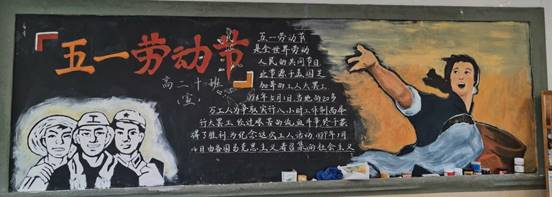 五一劳动节
高二十班
(宣)
五一劳动节
是全世界劳动
人民的共同节日
此节源于美国芝
加哥的工人大罢工
1886年5月1日,当地的20多
万工人为争取实行八小时工作制而举
行大罢工,经过艰苦的流血斗争,终于获
得了胜利,为纪念这次工人运动,1889年7月
14日由各国马克思主义者召集的社会主义